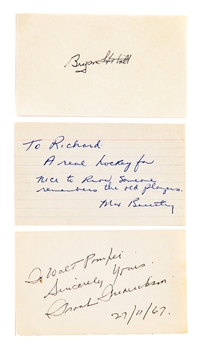 Bryan Hextall
To Richard
A real hockey fan
Nice to know someone
remembers the old players.
Max Bentley
To Walt Pompei
Sincerely Yours.
Frank Fredrickson
27/11/67.